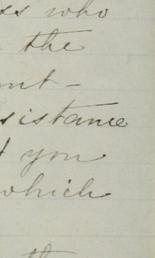 ss who
the
nt-
sistance
you
which
th